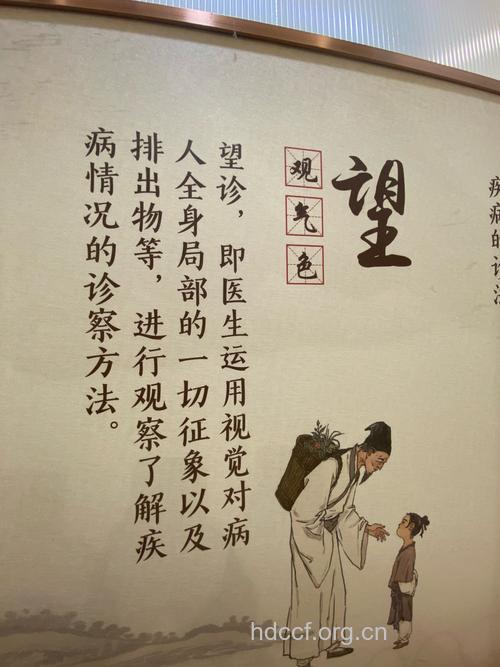 疾病的诊法
望
观气色
望诊，即医生运用视觉对病
人全身局部的一切征象以及
排出物等，进行观察了解疾
病情况的诊察方法。
hdccf.org.cn